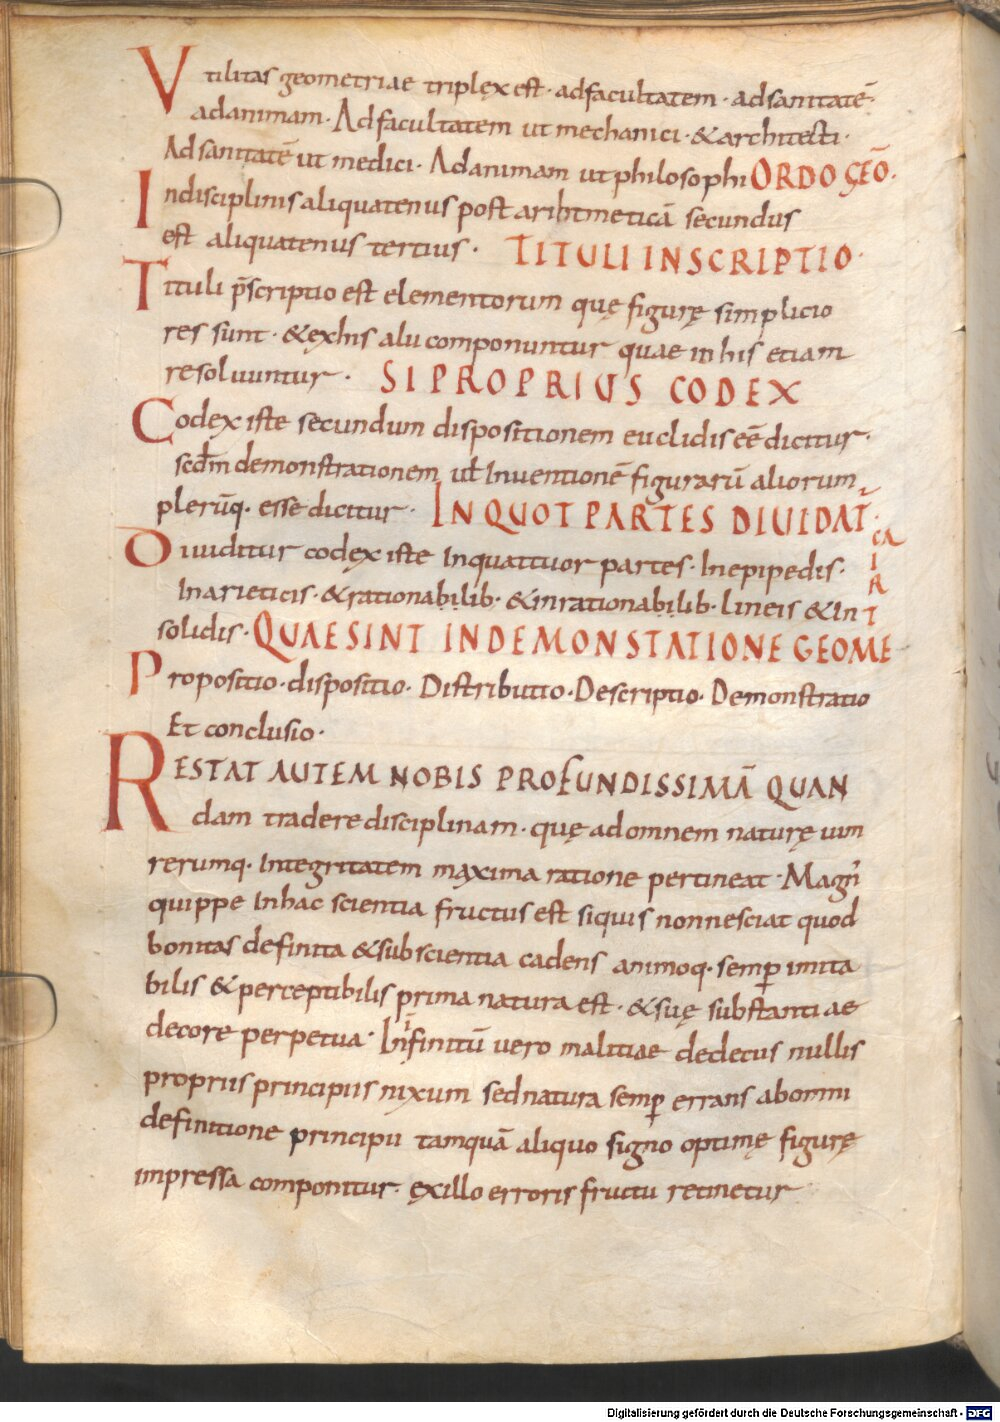 Vtilitas geometriae triplex est· ad facultatem· ad sanitatē·
ad animam· Ad facultatem ut mechanici· & architecti·
Ad sanitatē ut medici· Ad animam ut philosophi ORDO GEŌ·
In disciplinis aliquatenus post arithmeticā secundus
est aliquatenus tertius· TITULI INSCRIPTIO·
Tituli p̄scriptio est elementorum quę figurę simplicio
res sunt· & ex his alii componuntur quae in his etiam
resoluuntur· SI PROPRIUS CODEX
Codex iste secundum dispositionem euclidis eē dicitur·
scdm̄ demonstrationem ut Inuentionē figurarū aliorum
plerūq· esse dicitur· IN QUOT PARTES DIUIDAT̄·
Diuiditur codex iste In quattuor partes· In epipedis·
In arieticis· & rationabilib· & inrationabilib· lineis & In
solidis· QUAE SINT IN DEMONSTATIONE GEOME
CA
I
R
T
Propositio· dispositio· Distributio· Descriptio· Demonstratio
Et conclusio·
RESTAT AUTEM NOBIS PROFUNDISSIMĀ QUAN
dam tradere disciplinam· quę ad omnem naturę uim
rerumq· Integritatem maxima ratione pertineat· Magn᷒
quippe In hac scientia fructus est siquis non nesciat quod
bonitas definita & sub scientia cadens animoq· semp imita
bilis & perceptibilis prima natura est· & suę substantiae
decore perpetua· Infinitū uero malitiae dedecus nullis
propriis principiis nixum sed natura semp errans a boni
definitione principii tamquā aliquo signo optimę figurę
impressa componitur· ex illo erroris fructu retinetur
Digitalisierung gefördert durch die Deutsche Forschungsgemeinschaft - DFG